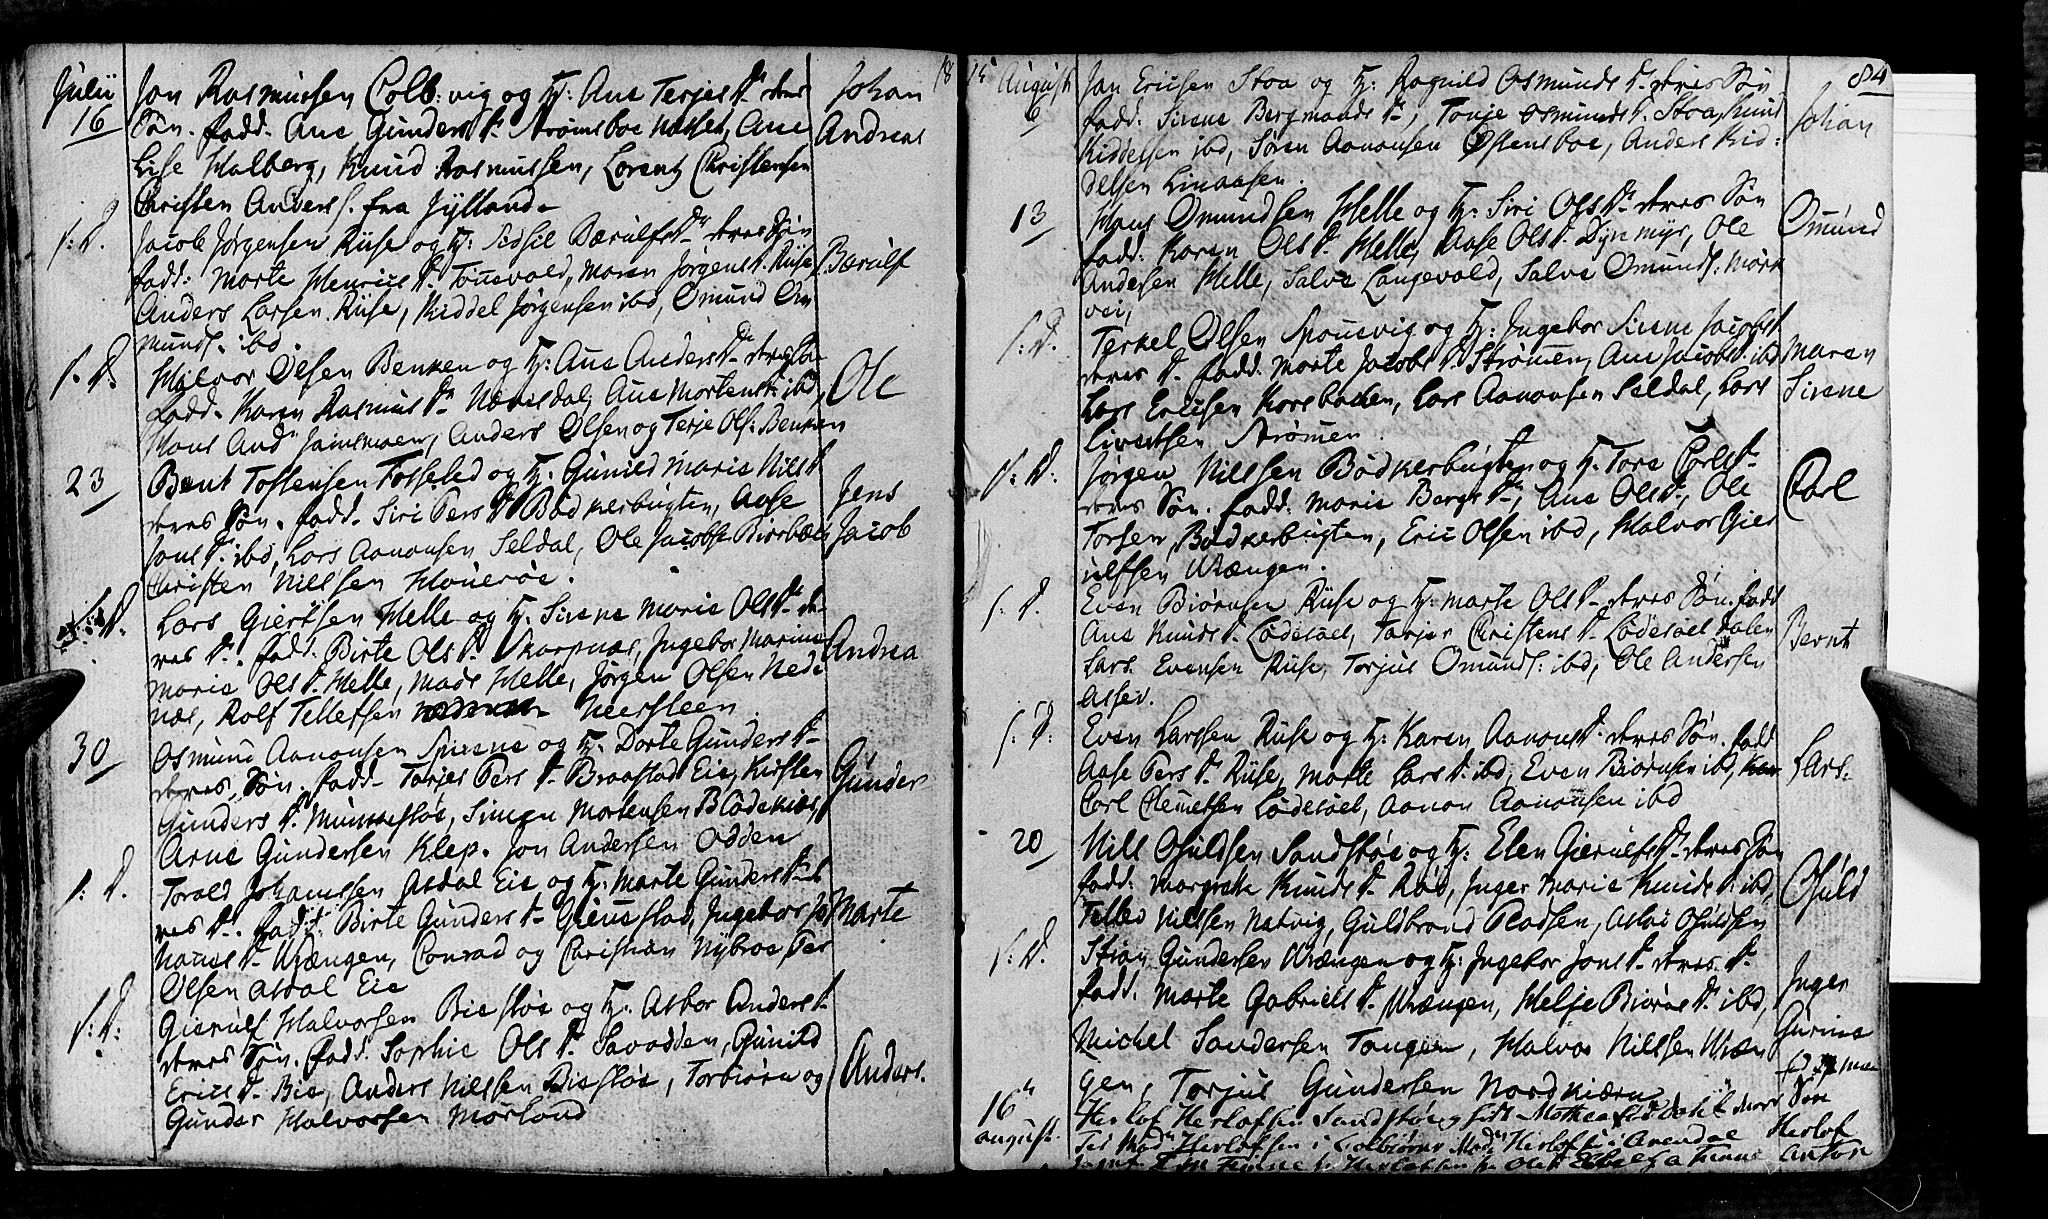 Julii
16
Jon Rasmussen Colb:vig og H: Ane Terjes D. deres
Søn. fadd. Ane Gunders D. Strømsboe Næsset, Ane
Lise Halberg, Knud Rasmussen, Lorentz Christensen
Christen Anders S. fra Jylland.
Johan
Andreas
s: D.
Jacob Jørgensen Riise og H: Sidsil Bærulfs Dr deres Søn
fadd: Marte Henrics D. Tousvald, Maren Jørgens D. Riise
Anders Larsen Riise, Kiddel Jørgensen ibd, Omund Om
munds. ibd.
Bærulf
s. D.
Halvor Olsen Benken og H: Ane Anders D. deres Søn
fadd. Karen Rasmus D. Næsdal, Ane Mortens D. ibd,
Hans And Olsen og Terje Ols: Benken
Ole
23
Bent Tostensen Fosseled og H: Gunild Marie Nils D.
deres Søn. fadd. Siri Pers D. Bødkerbugten, Aase
Jons D. ibd, Lars Aanonsen Seldal, Ole Jacobs. Birrbæk
Christen Nillsen Haverøe.
Jens
Jacob
s: D.
Lars Giertsen Helle og H: Sirene Marie Ols D. de
res D. fadd. Birte Ols D. Skarpnæs, Ingebor Marine
Marie Ols D. Helle, Mads Helle, Jørgen Olsen Nede
næs, Rolf Tellefsen Neersteen
Andrea
30
Osmund Aanonsen Spirene og H: Dorte Gunders D.
deres Søn. fadd. Torjes Pers D. Braastad Eie, Kirsten
Gunders D. Munkestøe, Simon Mortensen Blødekiær,
Arne Gundersen Klep. Jon Andersen Odden
Gunder
s: D.
Torald Johannesen Asdal Eie og H: Marte Gunders D. de
res D. fadd. Birte Gunders D. Gieustad, Ingebor Jo
hannes D. Vrængen, Conrad og Christian Nyboe Per
Olsen Asdal Eie
Marte
s: D:
Gierulf Halvorsen Biestøe og H: Asbor Anders D.
deres Søn. fadd. Sophie Ols D. Savodden, Gunild
Erics D. Bie, Anders Nillsen Biestøe, Torbiørn og
Gunder Halvorsen Mørland
Anders.
18
15 August
6
Jan Ericsen Stoa og H: Ragnild Osmunds D. deres Søn
fadd: Sirene Bergmands D., Tonje Osmunds D. Stoa, Knud
Kiddelsen ibd, Søren Aanonsen Østensboe, Anders Kid:
delsen Linaasen.
84
Johan
13
Hans Omundsen Helle og H: Siri Ols D. deres Søn
fadd: Karen Ols D. Helle, Aase Ols D. Dynmyr, Ole
Andersen Helle, Salve Langevold, Salve Omunds: Mørk
vei,
Omund
s: D.
Terkel Olsen Snousvig og H: Ingebor Sirene Jacobs D.
deres D. fadd. Marte Jacobs D. Strømen, Ane Jacobs D. ibd
Lars Ericsen Korsbacken, Lars Aanonsen Seldal, Lars
Sivertsen Strømen.
Maren
Sirene
s: D:
Jørgen Nillsen Bødkerbugten og H: Tore Carls D.
deres Søn. fadd. Marie Bergs Dr, Ane Ols D., Ole
Torsen, Bødkerbugten, Eric Olsen ibd, Halvor Gier
ulfsen Vrængen.
Carl
s. D.
Even Biørnsen Riise og H: Marte Ols D. deres Søn. fadd
Ane Knuds D. Lødesøel, Torjer Christens D. Lødesøel Dalen
Lars Evensen Riise, Torjus Omunds: ibd, Ole Andersen
Assev.
Bernt
s: D:
Even Larssen Riise og H: Karen Aanons D. deres Søn. fadd
Aase Pers D. Riise, Marte Lars D. ibd, Even Biørnsen ibd,
Carl Clemetsen Lødesøel, Aanon Aanonsen ibd
Lars.
20
Nils Osuldsen Sandstøe og H: Elen Gierulfs D. deres Søn
fadd: Margrete Knuds D. Røe, Inger Marie Knuds D. ibd,
Tellev Nillsen Natvig, Guldbrand Pladsen, Aslac Osuldsen
Osuld
s: D.
Stian Gundersen Vrængen og H: Ingebor Jons D. deres D.
fadd. Marte Gabriels D. Vrængen, Helje Biørns D. ibd,
Michel Sandersen Tangen, Halvor Nillsen Vræn
gen, Torjus Gundersen Nordkiærn
Inger
Gurine
16
august.
Herlof Herlofsen Sandstøe
Herlofsen i Colbiørns Mad. Herlofsen i Arendal
Søn
Herlof
Anton